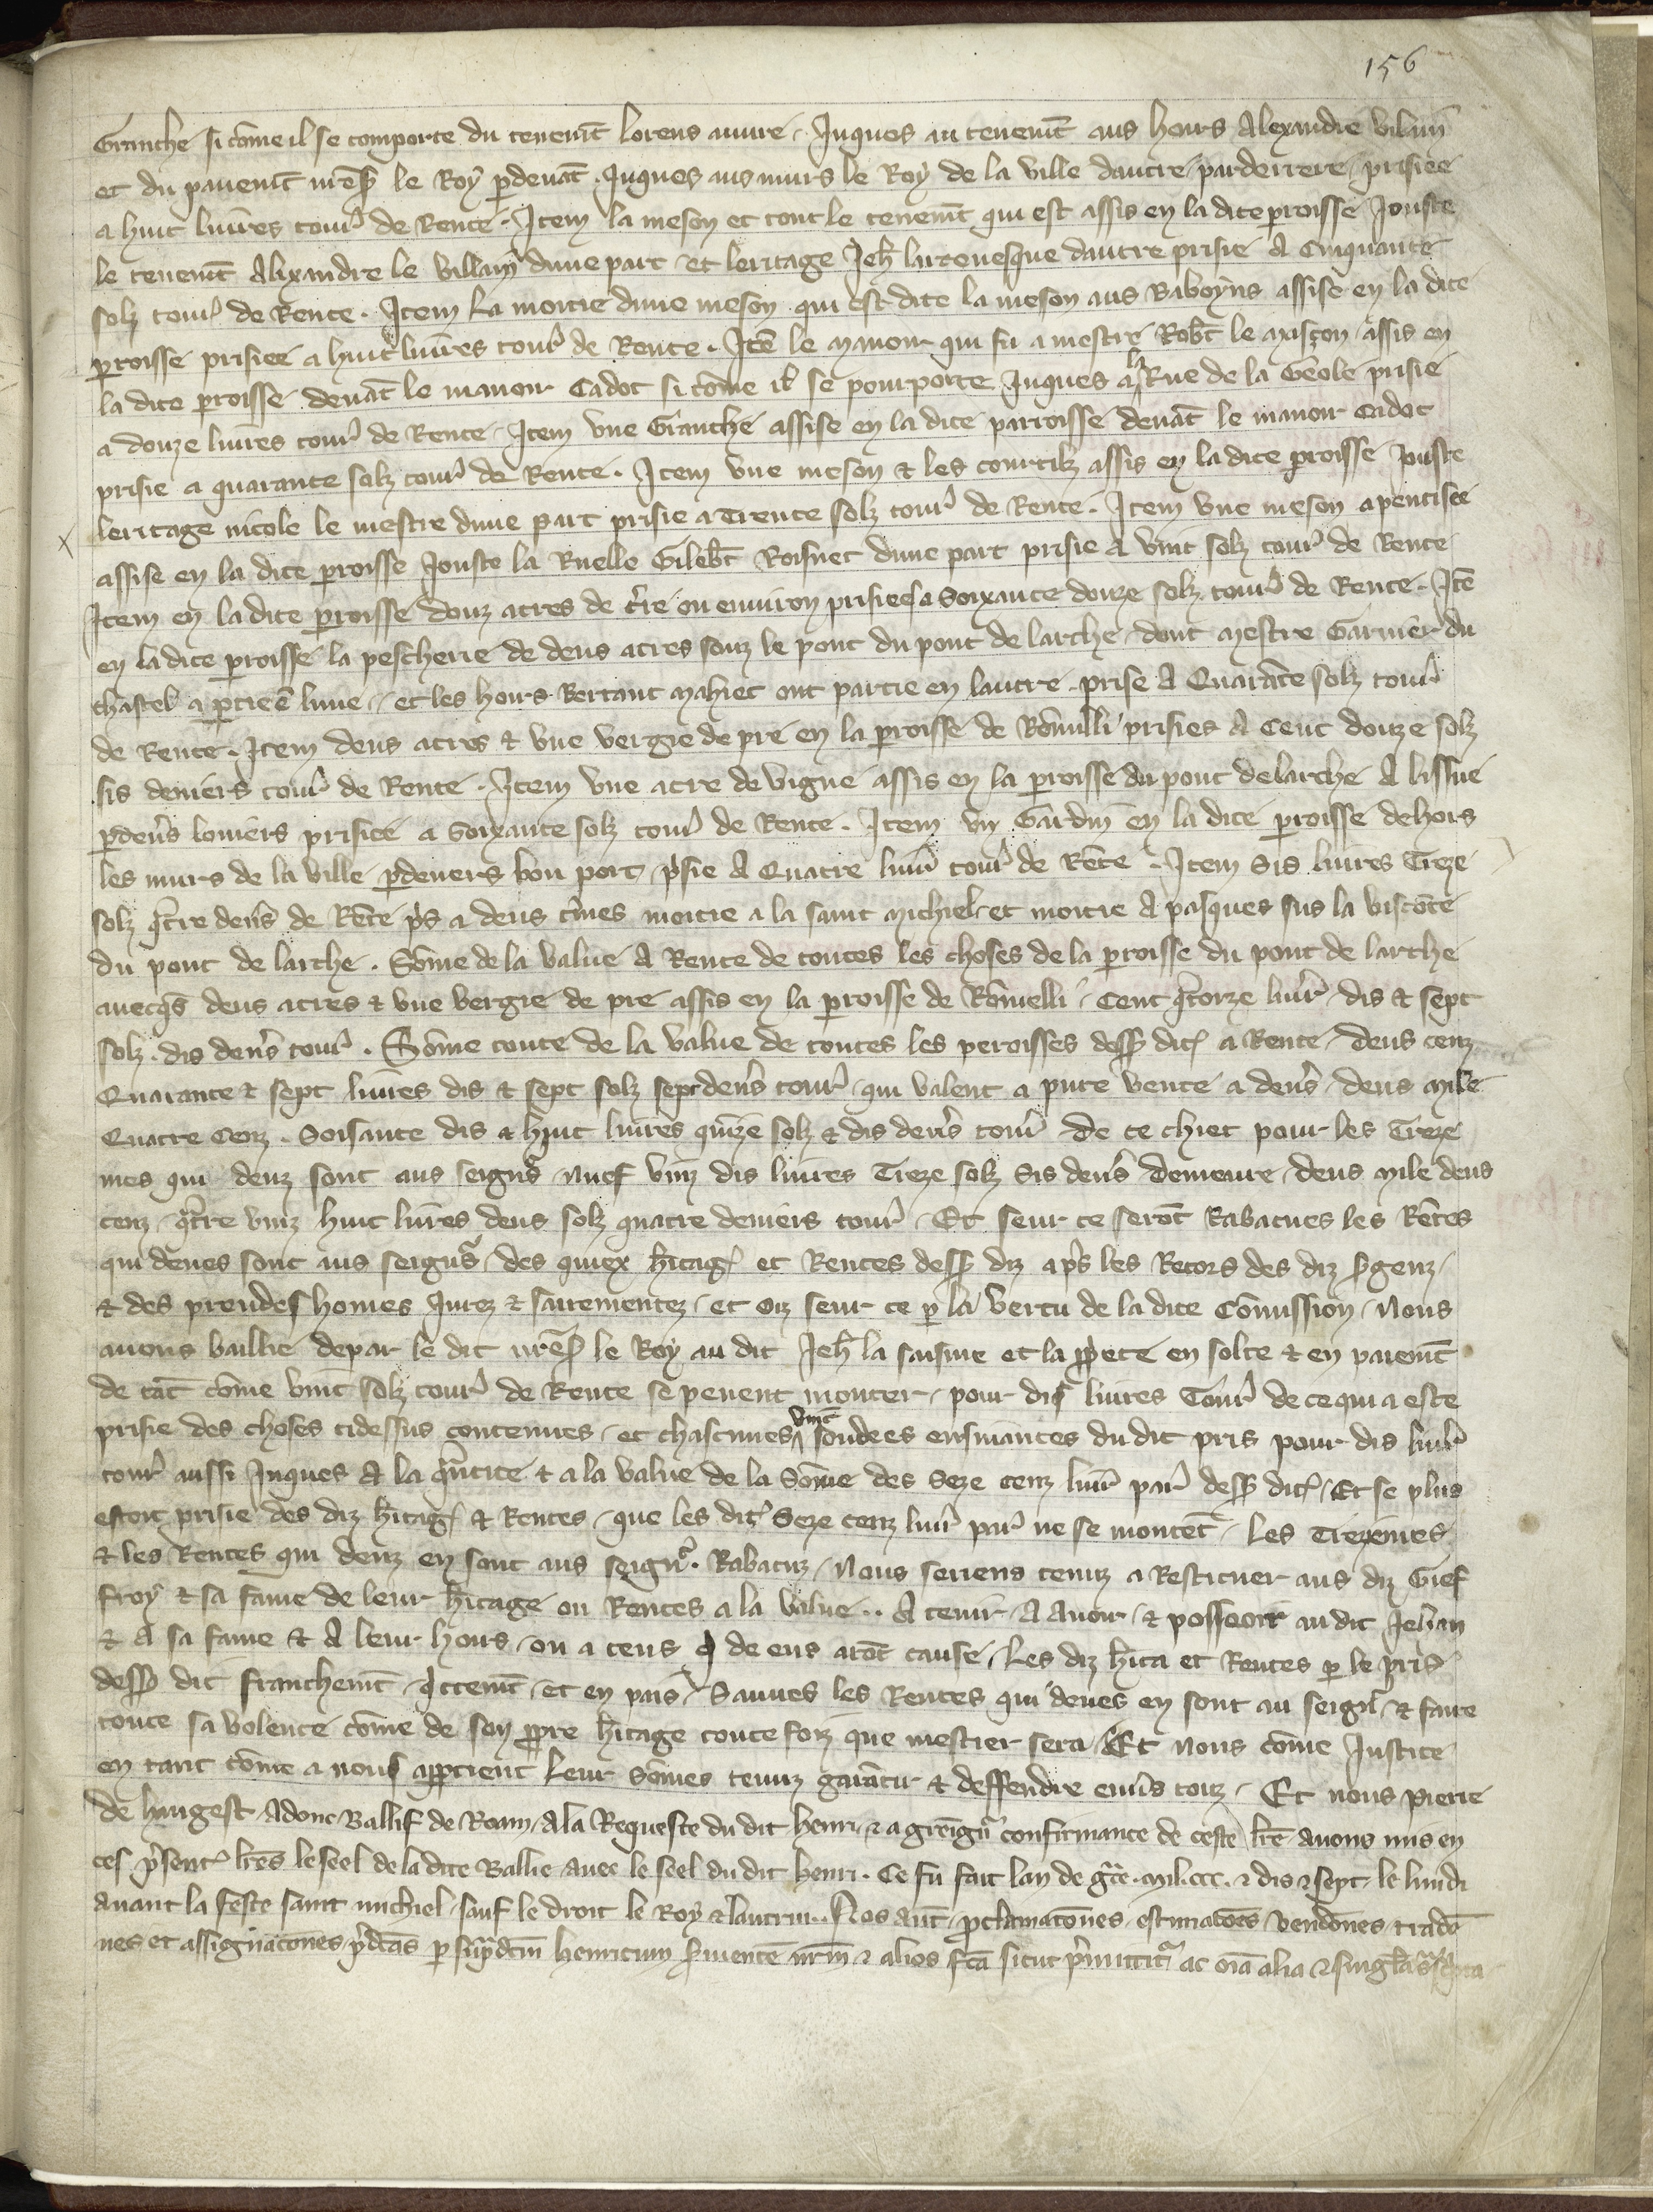 156
Granche si cōme il se comporte du tenemt̄ lorens auure . Juques au tenemt̄ aus hoirs Alexandre vilain
et du pauemt̄ nr̄e s̄ le Roy p̱deuāt . Juques aus murs le Roy de la ville dautre parderriere prisiee
a huit liures tour̄ de Rente . Item la meson et tout le tenemt̄ qui est assis en la dite ꝑroisse Jouste
le tenemt̄ Alixandre le villain dune part et leritage Jeh̄ larceuesque dautre prisie A Cinquante
solz tour̄ de Rente . Item La moitie dune meson qui est dite la meson aus Baboyns assise en la dite
ꝑroisse prisiee a huit liures tour̄ de Rente . Itē le manoir qui fu a mestre Rob̄t le maison assis en
la dite ꝑroisse deuāt le manoir Cadot si cōme il se pourporte Juques a la Rue de la Geole prisie
a douze liures tour̄ de Rente Item vne Granche assise en la dite parroisse deuāt le manoir Cadot
prisie a quarante solz tour̄ de Rente . Item vne meson & les courtilz assis en la dite ꝑroisse Jouste
leritage nicole le mestre dune part prisie a Trente solz tour̄ de Rente . Item vne meson apentisee
assise en la dite ꝑroisse Jouste la Ruelle Gileb̄t Roisnet dune part prisie A vint solz tour̄ de Rente
Item en la dite ꝑroisse douz acres de t̄re ou enuiron prisiees a Soixante douze solz tour̄ de Rente . Itē
en la dite ꝑroisse la pescherie de deus acres souz le pont du pont de larche dont mestre Garnier du
chastel a ꝑtie ē lune et les hoirs Bertaut mahiet ont partie en lautre prise A Quarāte solz tour̄
de Rente . Item deus acres & vne vergie de pre en la ꝑroisse de Rōmilli prisies A Cent douze solz
sis deniers tour̄ de Rente . Item vne acre de vigne assis en la ꝑroisse du pont de larche A lissue
ꝑdeu̓s louiers prisiee a Soixante solz tour̄ de Rente . Item vn Gardin en la dite ꝑroisse dehors
les murs de la ville ꝑdeuers bon port p̓sie A Quatre liur̄ tour̄ de Rēte . Item Sis liures Treze
solz q̓tre den̓s de Rēte p̓s a deus t̓mes moitie a la saint Michiel et moitie A pasques sus la viscōte
du pont de larche . Sōme de la value A Rente de toutes les choses de la ꝑroisse du pont de larche
auecq̄s deus acres & vne vergie de pre assis en la ꝑroisse de Rōmelli Cent q̓torze liur̄ dis & sept
solz . dis den̓s tour̄ . Sōme toute de la value de toutes les peroisses dess̄ dit̄ a Rente deus cenz
Quarante & sept liures dis & sept solz sept den̓s tour̄ qui valent a pure vente a den̓s deus mile
Quatre Cenz . Soisante dis & huit liures quīze solz & dis den̓s tour̄ De ce chiet pour les Treze
mes qui deuz sont aus seign̓s nuef vinz dis liures Treze solz Sis den̓s Demeure deus mile deus
cenz q̓tre vinz huit liures deus solz quatre deniers tour̄ . Et seur ce serōt Rabatues les Rētes
qui deues sont aus seign̓s des quiex h̓itaḡ et Rentes dess̄ diz ap̓s les Recors des diz s̓genz
& des preudes homes Jurez & sairementez et oiz seur ce ꝑ la vertu de la dite Cōmission Nous
auons baillie de par le dit nr̄e s̄ le Roy au dit Jeh̄ la saisine et la ꝓp̓ete en solte & en paiemt̄
de tāt cōme vint solz tour̄ de Rente se peuent monter pour dis liures Tour̄ de ce qui a este
prisie des choses ci dessus contenues et chascunes vint soudees ensiuantes du dit pris pour dis liur̄
tour̄ aussi Juques A la q̓ntite & a la value de la Sōme des Seze cenz liur̄ par̄ dess̄ dit̄ . Et se plus
estoit prisie des diz h̓itaḡ & Rentes que les dit̄ Seze cenz liur̄ par̄ ne se montēt les Trezemes
& les Rentes qui deuz en sont aus seign̓ . Rabatuz Nous serions tenuz a Restituer aus diz Gief
froy & sa fame de leur h̓itage ou Rentes a la value . . A tenir A Auoir & posseoir au dit Jehan
& A sa fame & A leur hoirs ou a ceus q̓ de eus arōt cause Les diz h̓ita et Rentes ꝑ le pris
dess̄ dit franchemt̄ q̓ttemt̄ et en pais Sauues les Rentes qui deues en sont au seign̓ & faire
toute sa volente cōme de son ꝓpre h̓itage toute foiz que mestier sera Et nous cōme Justice
en tant cōme a nous apꝑtient Leur Sōmes tenuz garātir & deffendre enu̓s touz . Et nous Pierre
de hangest Adonc Ballif de Roam A la Requeste du dit henri & a greign̓ confirmance de ceste lr̄e auons mis en
ces p̓sent̄ lr̄es le seel de la dite Ballie auec le seel du dit henri . Ce fu fait lan de gr̄ce . mil . ccc . & dis & sept le lundi
auant la feste saint michiel sauf le droit le Roy & lautrui . . Nos aūt ꝓclamatōnes estimatōnes vendōnes tradō
nes et assignatōnes p̓dc̄as ꝑ sup̓dc̄m henricum s̓uientē nr̄m & alios fc̄a sicut p̓mittit̓ ac oīa alia & sing̓la